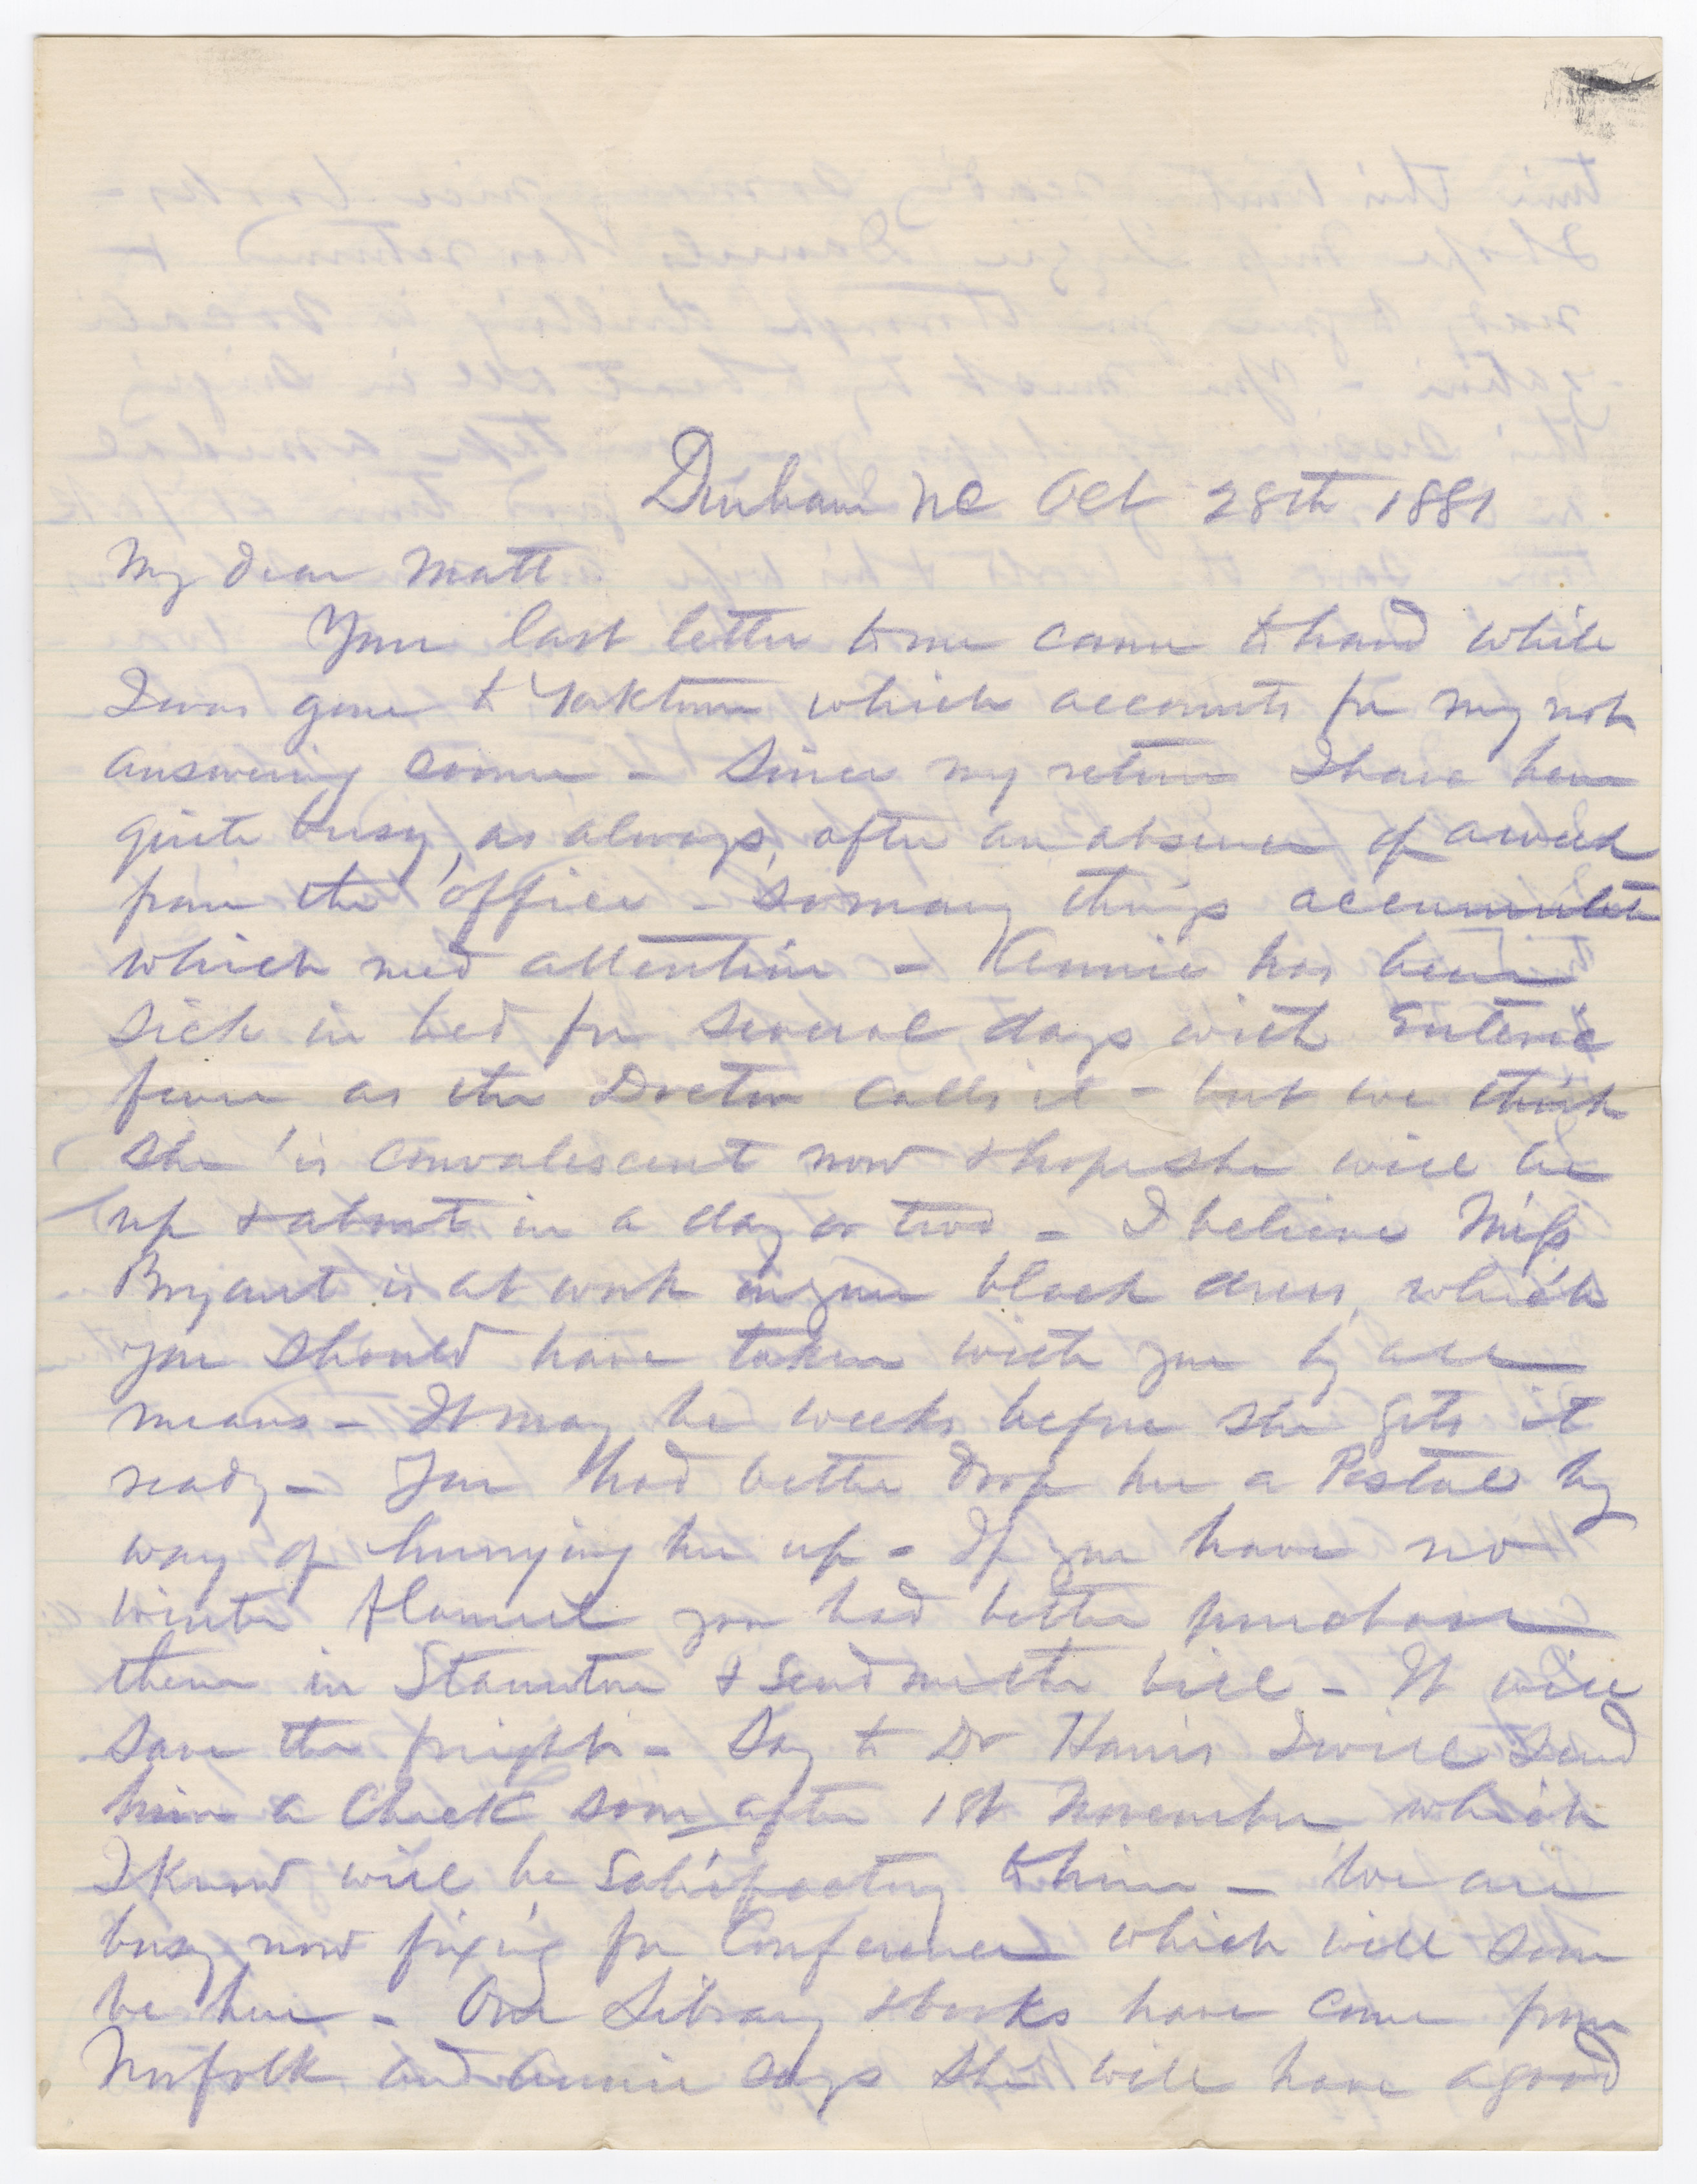 Durham NC Oct 28th 1881
My dear Matt
Your last letter to me came to hand while
I was gone to Yorktown which accounts for my not
answering sooner - Since my return I have been
quite busy, as always, after an absence of a week
from the office - So many things accumulate
which need attention - Annie has been
sick in bed for several days with Enteric
fever as the Doctor calls it - but we think
she is convalescent now & hope she will be
up & about in a day or two - I believe Miss
Bryant is at work on your black dress, which
you should have taken with you by all
means - It may be weeks before she gets it
ready - You had better drop her a Postal by
way of hurrying her up - If you have no
winter flannel you had better purchase
them in Staunton & send me the bill - It will
save the freight - Say to Dr Harris I will send
him a Check soon after 1st November which
I know will be satisfactory to him - We are
busy now fixing for Conference which will soon
be here - Our Library & books have come from
Norfolk and Annie says she will have a good